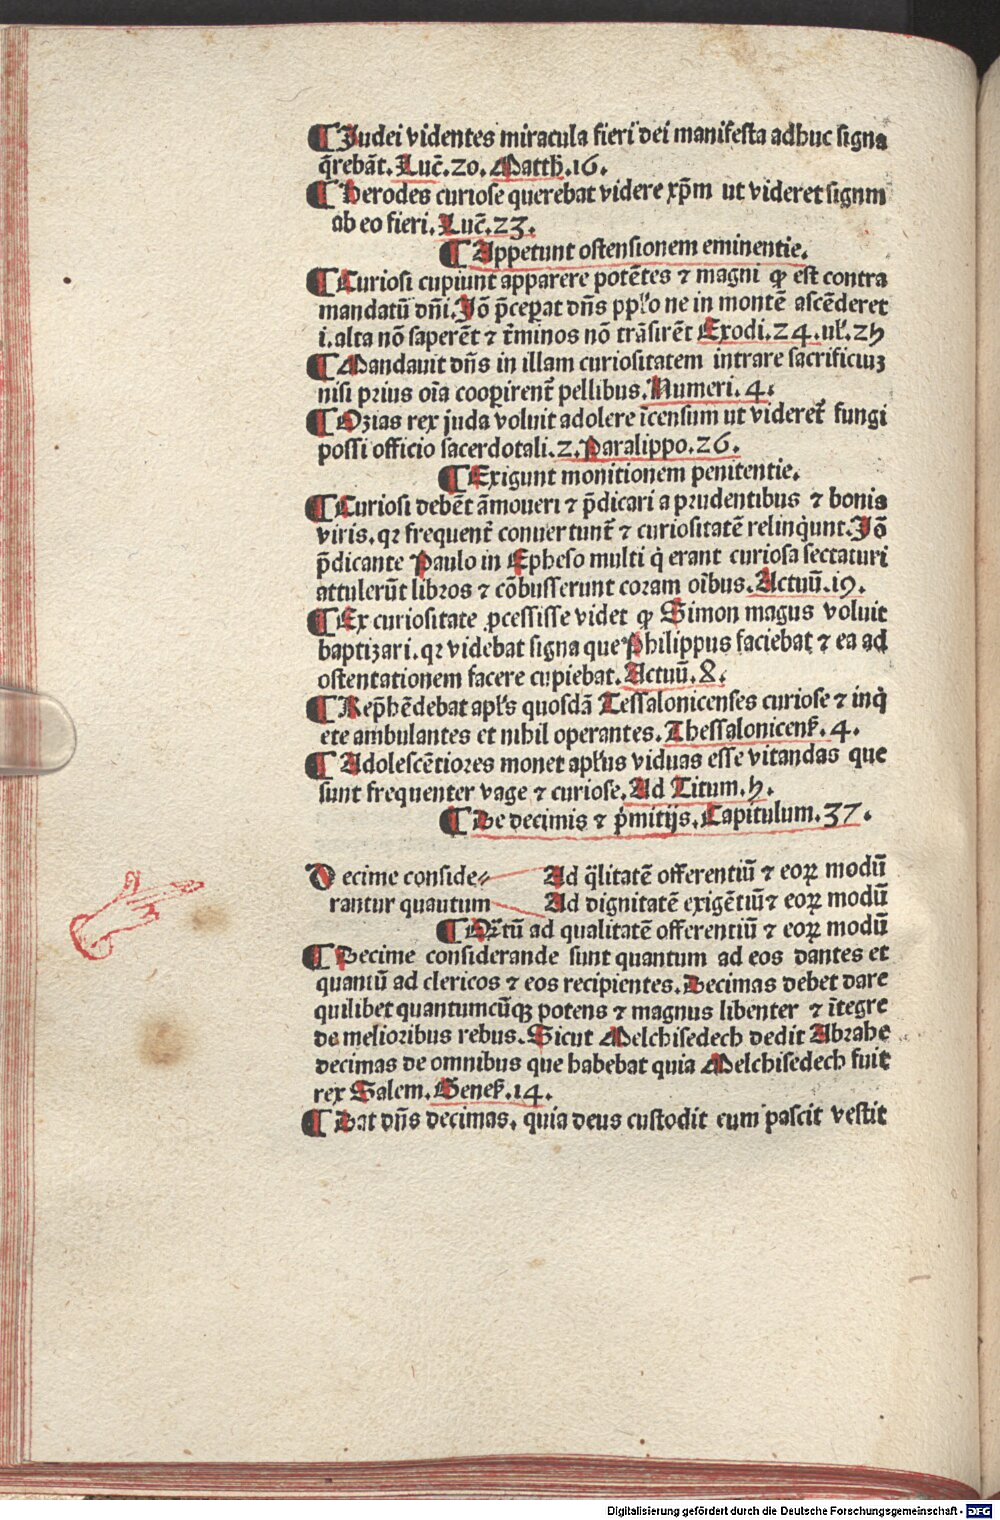 ¶ Judei videntes miracula fieri dei manifesta adhuc signa
q̄rebāt. Luč. 20. Matth. 16.
¶ Herodes curiose querebat videre xp̄m ut videret signm
ab eo fieri. Luč. 23.
¶ Appetunt ostensionem eminentie.
¶ Curiosi cupiunt apparere potētes ⁊ magni ꝙ est contra
mandatū dn̄i. Jō p̄ceperat dn̄s pplo ne in montē ascēderet
i. alta nō saperēt ⁊ t̄minos nō trāsirēt Exodi. 24. ul. 25
¶ Mandauit dn̄s in illam curiositatem intrare sacrificiuz
nisi prius oīa cooꝑirent̄ pellibus. Numeri. 4.
¶ Ozias rex juda voluit adolere īcensum ut videret̄ fungi
possi officio sacerdotali. 2. Paralippo. 26.
¶ Exigunt monitionem penitentie.
¶ Curiosi debēt āmoueri ⁊ p̄dicari a prudentibus ⁊ bonis
viris. qꝛ frequent̄ conuertunt̄ ⁊ curiositatē relinq̇unt. Jō
p̄dicante Paulo in Epheso multi q̇ erant curiosa sectaturi
attulerūt libros ⁊ cōbusserunt coram oībus. Actuū. 19.
¶ Ex curiositate ꝓcessisse videt ꝙ Simon magus voluit
baptizari. qꝛ videbat signa que Philippus faciebat ⁊ ea ad
ostentationem facere cupiebat. Actuū. 8.
¶ Rep̄hēdebat apl̄s quosdā Tessalonicenses curiose ⁊ inq̇
ete ambulantes et nihil operantes. Thessalonicenẜ. 4.
¶ Adolescētiores monet apl̄us viduas esse vitandas que
sunt frequenter vage ⁊ curiose. Ad Titum. 5.
¶ De decimis ⁊ p̄mitijs. Capitulum. 37.
Decime conside⸗ Ad q̄litatē offerentiū ⁊ eoꝝ modū
rantur quantum Ad dignitatē exigētiū ⁊ eoꝝ modū
¶ Q̄tū ad qualitatē offerentiū ⁊ eoꝝ modū
¶ Decime considerande sunt quantum ad eos dantes et
quantū ad clericos ⁊ eos recipientes. Decimas debet dare
quilibet quantumcūqꝫ potens ⁊ magnus libenter ⁊ ītegre
de melioribus rebus. Sicut Melchisedech dedit Abrahe
decimas de omnibus que habebat quia Melchisedech fuit
rex Salem. Geneẜ. 14.
¶ Dat dn̄s decimas, quia deus custodit eum pascit vestit
Digitalisierung gefördert durch die Deutsche Forschungsgemeinschaft - DFG